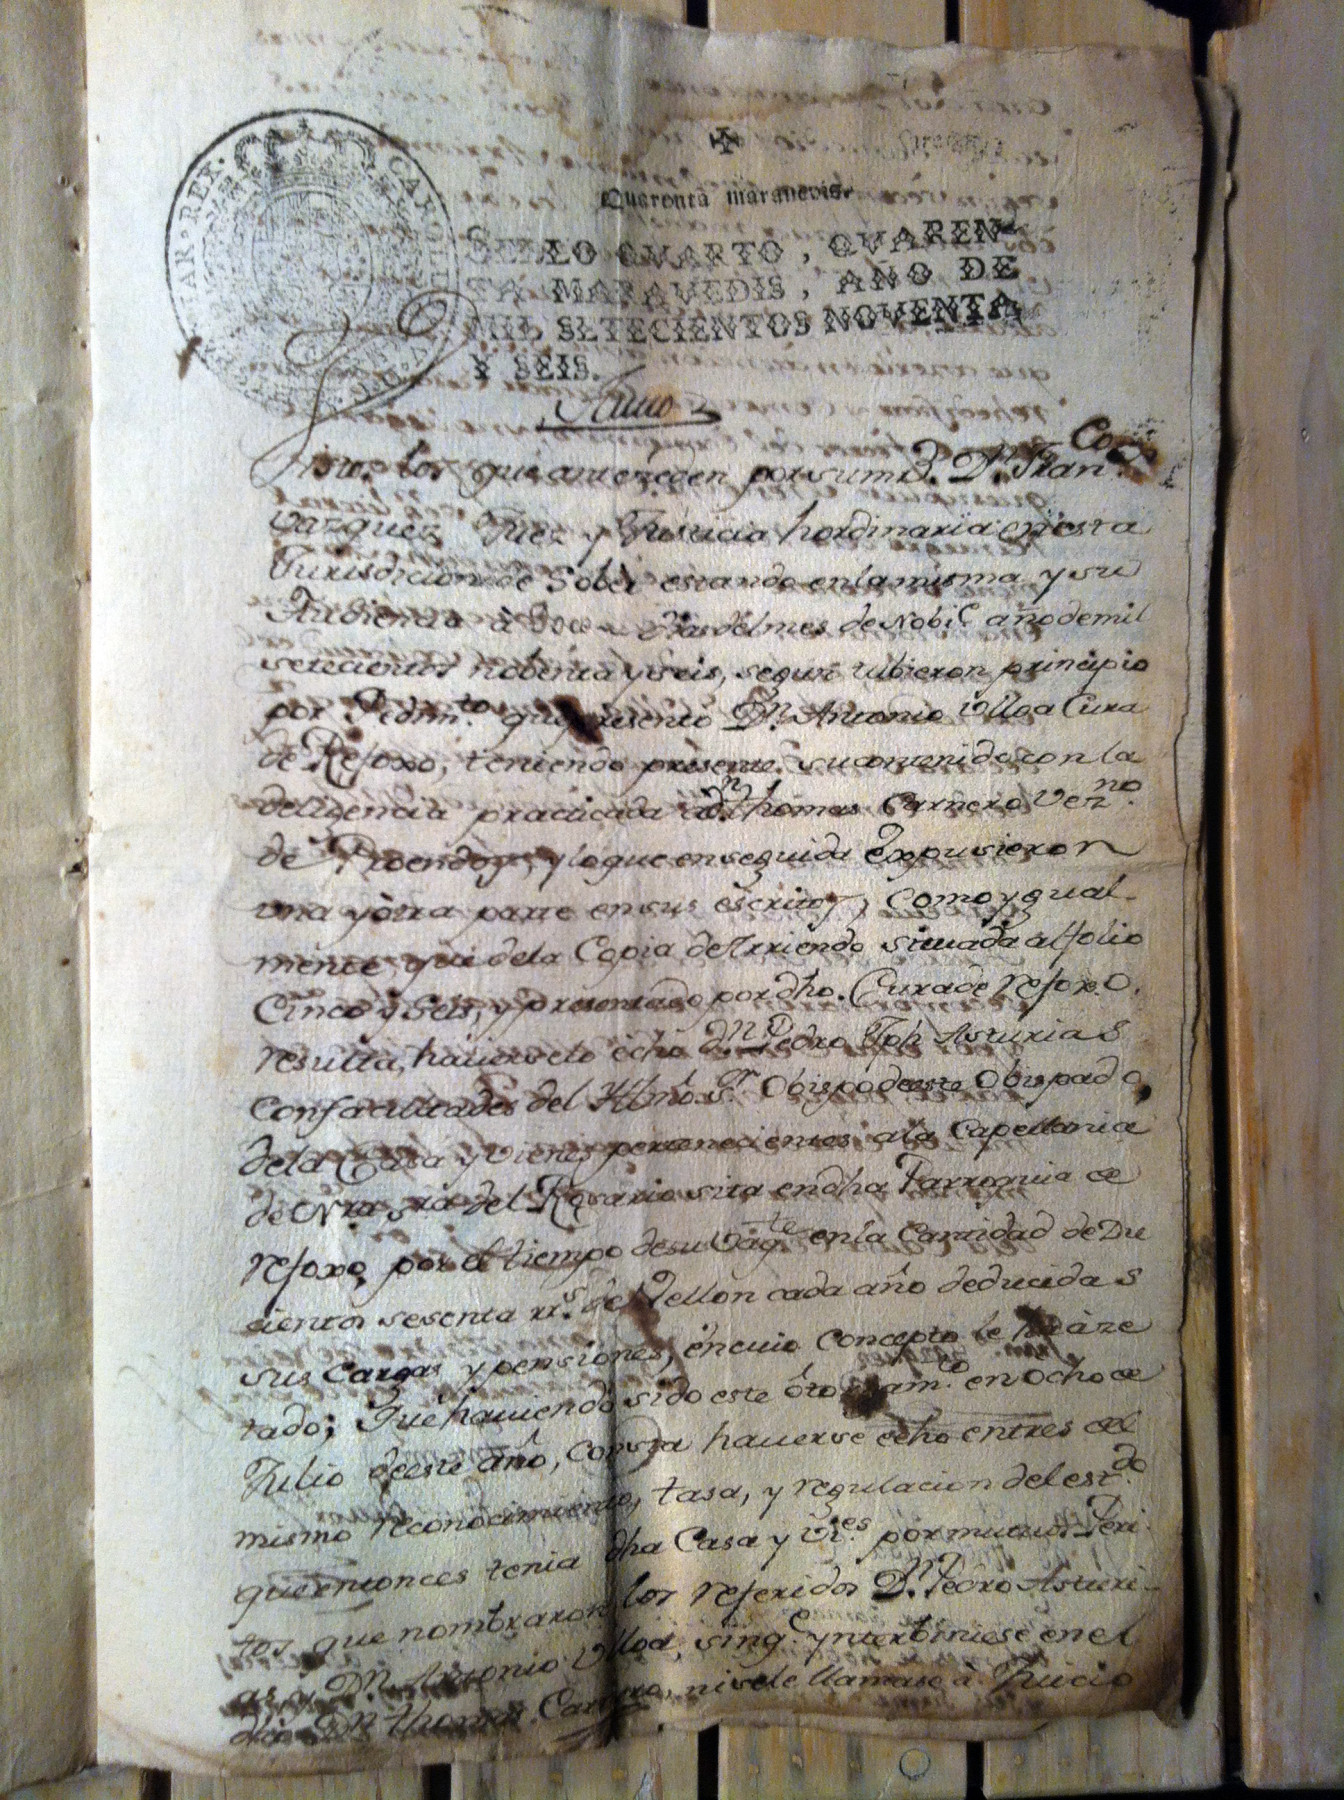 HISPANIAR·REX·CAROLUS
Quarenta maravedis.
SELLO QVARTO, QVAREN-
TA MARAVEDIS, AÑO DE
MIL SETECIENTOS NOVENTA
Y SEIS.
Auto
Vistos los que antereden por sumrd. Dn. Fran.co
Vazquez Juez y Justicia hordinaria enesta
Jurisdicion de Sober estando enlamisma y su
Audiencia à doce dias delmes de Nobi.e año demil
setecientos nobenta y seis, segun tubieron principio
por Pedim.to que presento Dn. Antonio Ulloa Cura
de Refoxo, teniendo presente su contenido con la
deligencia practicada a Dn. thomas Carnero Vez.no
de Proendos, y loque enseguida expusieron
una y òtra parte ensus escritos, Como ygual-
mente que dela Copia de Arriendo situada alfolio
Cinco y Seis, y presentado por dho. Cura de Refoxo.
resulta, hauerselo echo dn. Pedro Jph Asturias
Confacultades del Yllmo. Sr. Obispo deeste Obispado,
dela Casa y vienes pertenecientes ala Capellania
de Nra Sra del Rosario sita endha Parroquia de
refoxo, por el tiempo desu Vag.te enla Cantidad de Du
cientos sesenta rr.s de Vellon cada año deducidas
sus Cargas y pensiones, encuio Concepto le
tado; Que hauiendo sido este òtorgam.to en ocho de
Julio deeste año, Consta hauerse echo entres del
mismo reconocimiento, tasa, y regulacion del est.do
que entonces tenia dha Casa y vi.es por mutuos Peri-
tos que nombraron los referidos Dn. Pedro Asturi-
as, y Dn. Antonio Ulloa, sing.e ynterbiniese en el
dho Dn. thomas Carnero, nisele llamase à Juicio